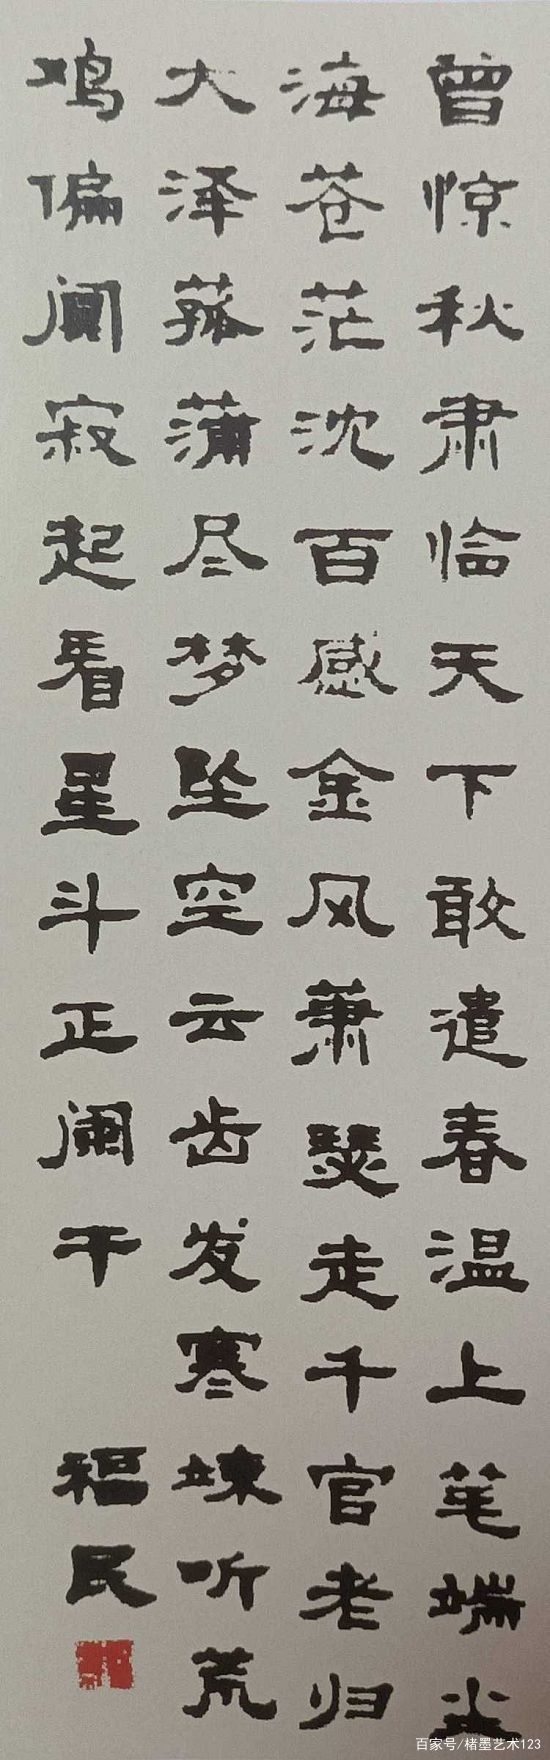 曾惊秋肃临天下敢遣春温上笔端尘
海苍茫沈百感金风萧瑟走千官老归
大泽菰蒲尽梦坠空云齿发寒竦听荒
鸡偏阒寂起看星斗正阑干
福民
百家号/楮墨艺术123